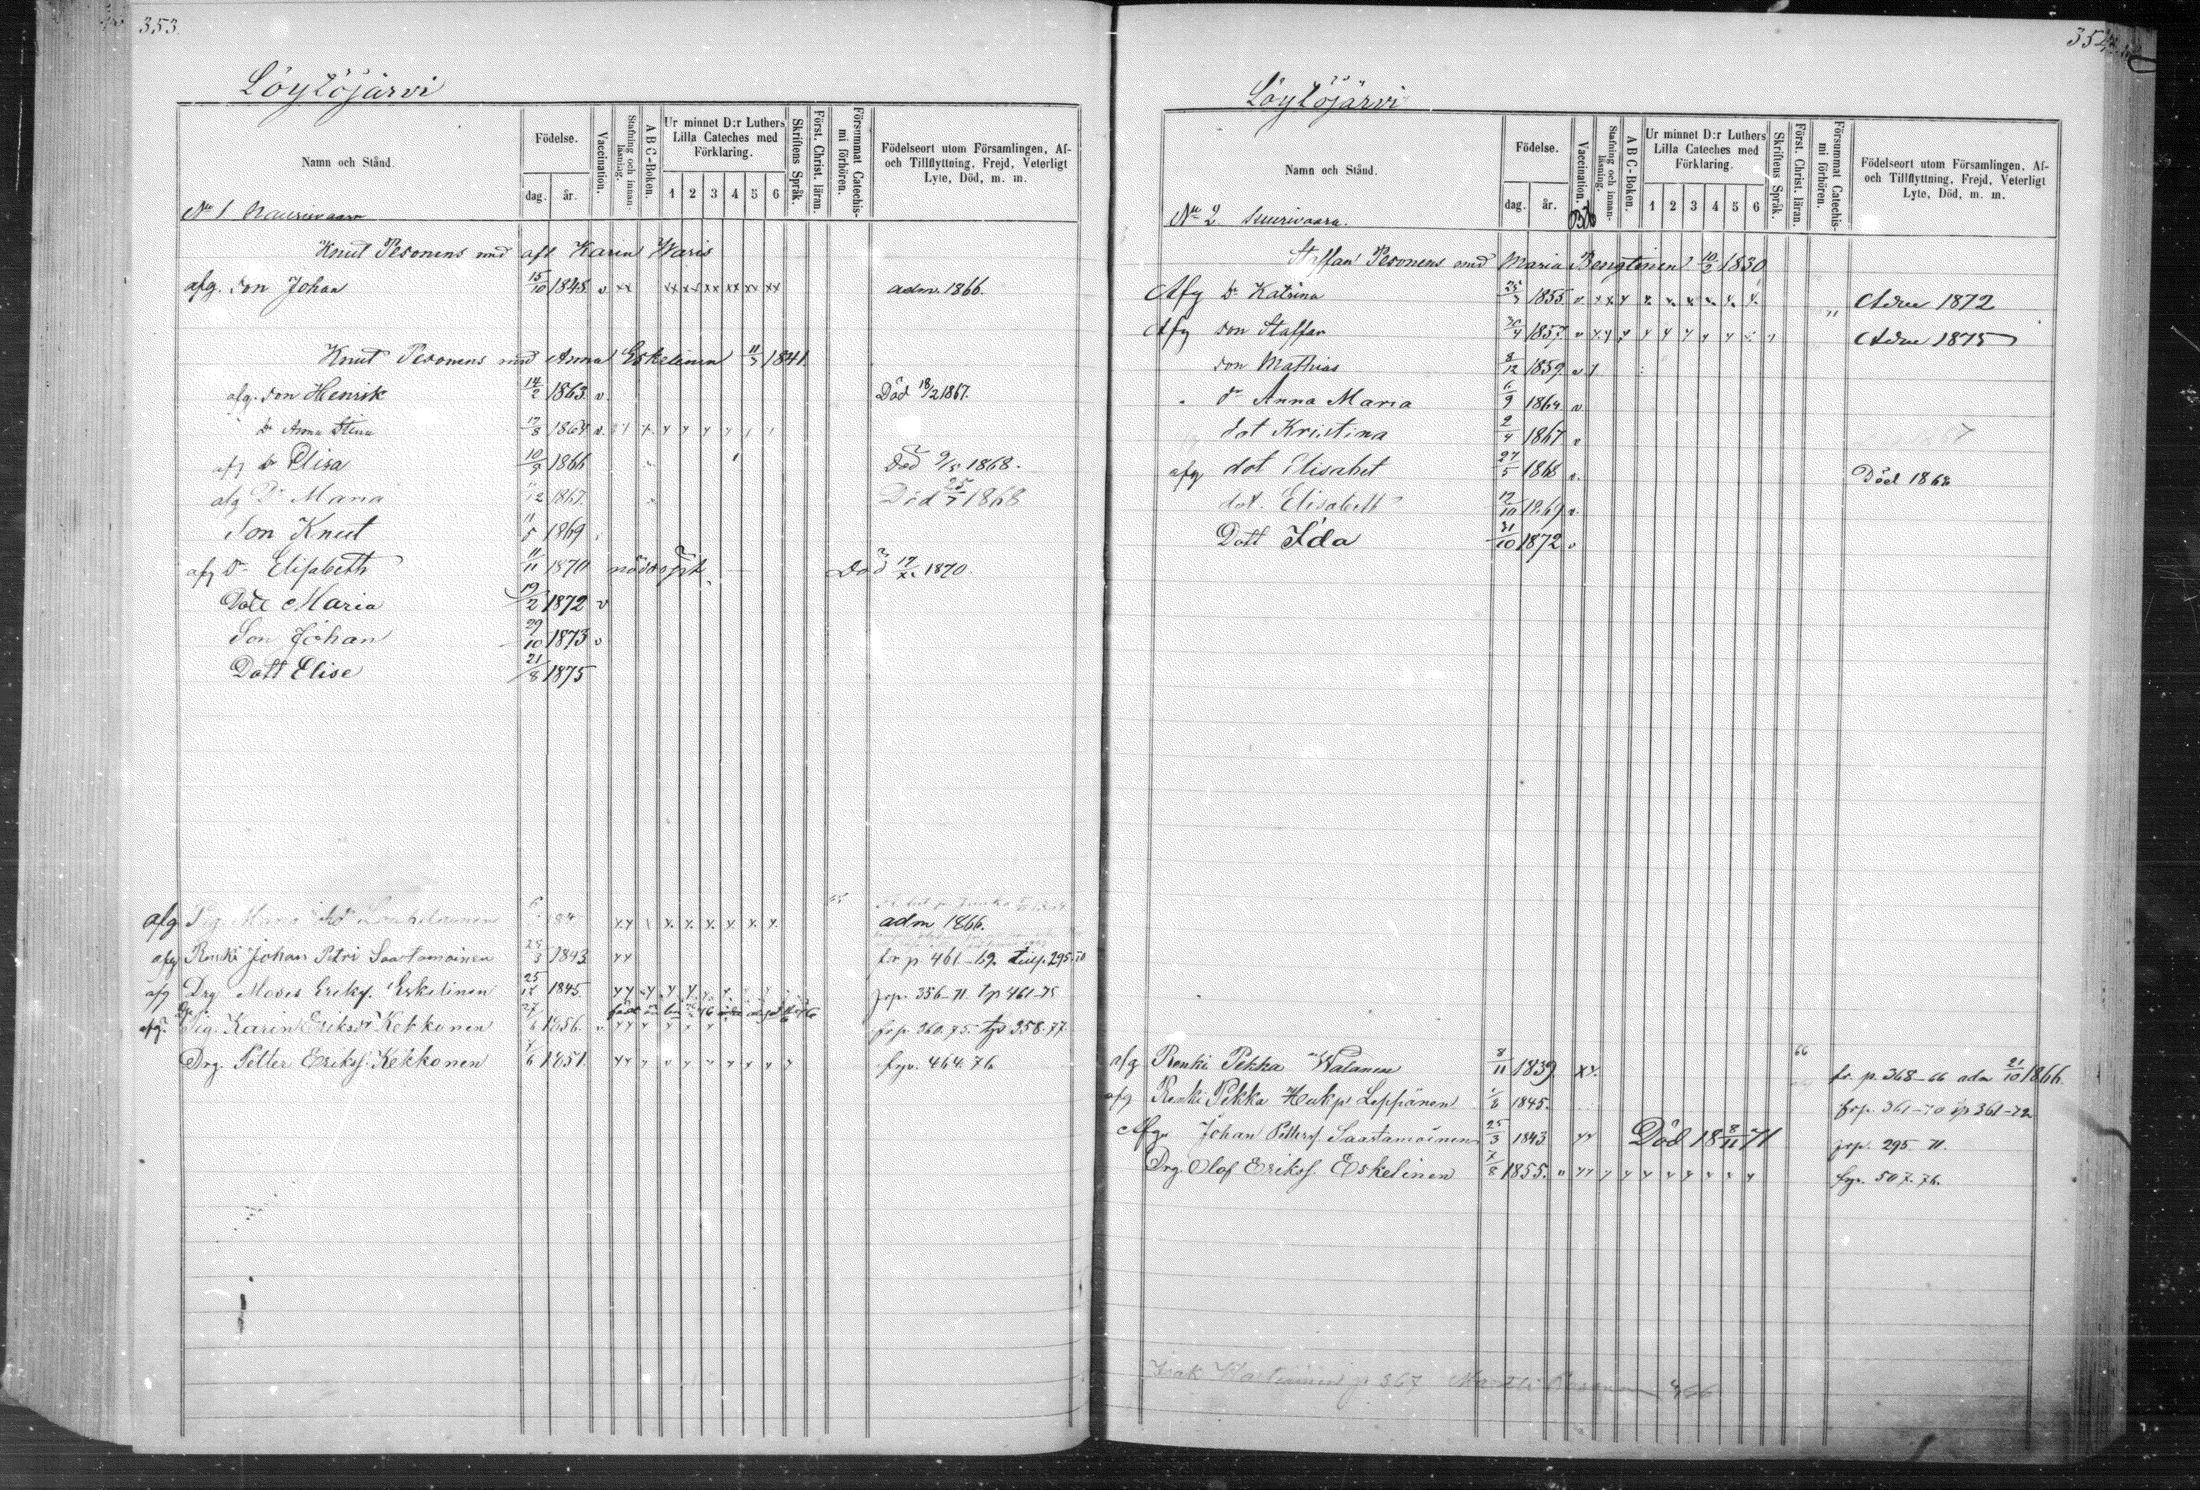 353.
Löytöjärvi
Namn och Stånd.
Födelse.
dag.
år.
Vaccination.
Stafning och innan-läsning.
ABC-Boken.
Ur minnet D:r Luthers Lilla Cateches med Förklaring.
1 2 3 4 5 6
Skriftens Språk.
Först. Christ. läran.
Försummat Catechis-mi förhören.
Födelseort utom Församlingen, Af- och Tillflyttning, Frejd, Veterligt Lyte, Död, m. m.
No 1
Knut Pesonens med aft Karin Waris
afg. Son Johan 15/10 1848. v xx xx xx xx xx xx xx adm. 1866.
Knut Pesonens med Anna Eskelinen 11/3 1841.
afg. Son Henrik 14/2 1863. v Död 18/2 1867.
Dr Anna Stina 17/8 1864 v.
afg Dr Elisa 10/9 1866 Död 9/5 1868.
afg Dr Maria 12 1867. Död 25/7 1868
Son Knut 11/5 1869
afg Dr Elisabeth 11/11 1870 nöddöpt Död 17/XI 1870.
Dott Maria 19/2 1872 v
Son Johan 29/10 1873 v
Dott Elise 21/8 1875
afg Pig. Maria adm 1866.
afg Renki Johan Petri Saastamoinen 25/3 1843 fr p 461-69. 295-70
afg Drg Moses Eriks. Eskelinen 25/12 1845. frp. 356-71. tp 461-75
afg. Pig. Karin Eriksdr Kekkonen 1856. v frp. 360.75. tp 358.77.
Drg. Petter Eriks. Kekkonen 1851. frp. 464.76
354
Löytöjärvi
Namn och Stånd.
Födelse.
dag.
år.
Vaccination.
Stafning och innan-läsning.
ABC-Boken.
Ur minnet D:r Luthers Lilla Cateches med Förklaring.
1 2 3 4 5 6
Skriftens Språk.
Först. Christ. läran.
Försummat Catechis-mi förhören.
Födelseort utom Församlingen, Af- och Tillflyttning, Frejd, Veterligt Lyte, Död, m. m.
No 2 Suurivaara.
Staffan Pesonens med Maria Bengtinen 10/3 1830
Afg Dr Katrina 1855. v Adm 1872
Afg Son Staffan 1857. v Adm 1875
Son Mathias 8/12 1859. v
dr Anna Maria 6/9 1864 v
dot Kristina 2/4 1867 v
afg dot Elisabet 27/5 1868 v. Död 1868
dot. Elisabeth 12/10 1869 v.
Dott Ida 31/10 1872 v
afg Renki Pekka Watanen 8/11 1839 xx. 66 fr. p. 368-66 adm 21/10 1866.
afg Renki Pekka Heikp Leppänen 1845. frp. 361-70 tp 361-72
Afg. Johan Petters. Saastamoinen 25/3 1843 Död 18 8/11 71 frp. 295. 71.
Drg. Olof Eriks. Eskelinen 7/8 1855. v frp. 507.76.